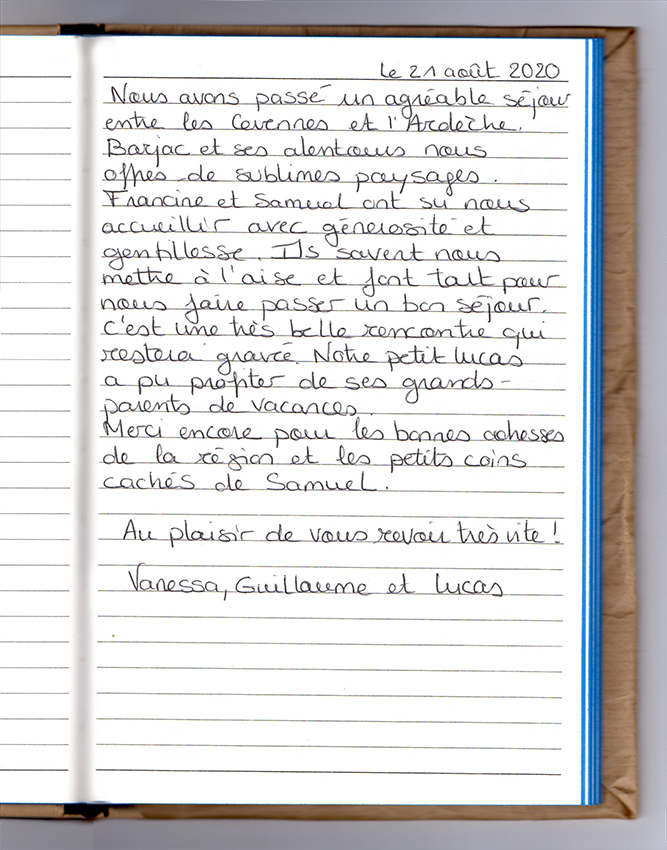 Le 21 août 2020
Nous avons passé un agréable séjour
entre les Cevennes et l'Ardèche.
Barjac et ses alentours nous
offres de sublimes paysages.
Francine et Samuel ont su nous
accueillir avec génerosité et
gentillesse. Ils savent nous
mettre à l'aise et font tout pour
nous faire passer un bon séjour.
C'est une très belle rencontre qui
restera gravée. Notre petit Lucas
a pu profiter de ses grands-
parents de vacances.
Merci encore pour les bonnes adresses
de la région et les petits coins
cachés de Samuel.
Au plaisir de vous revoir très vite !
Vanessa, Guillaume et Lucas